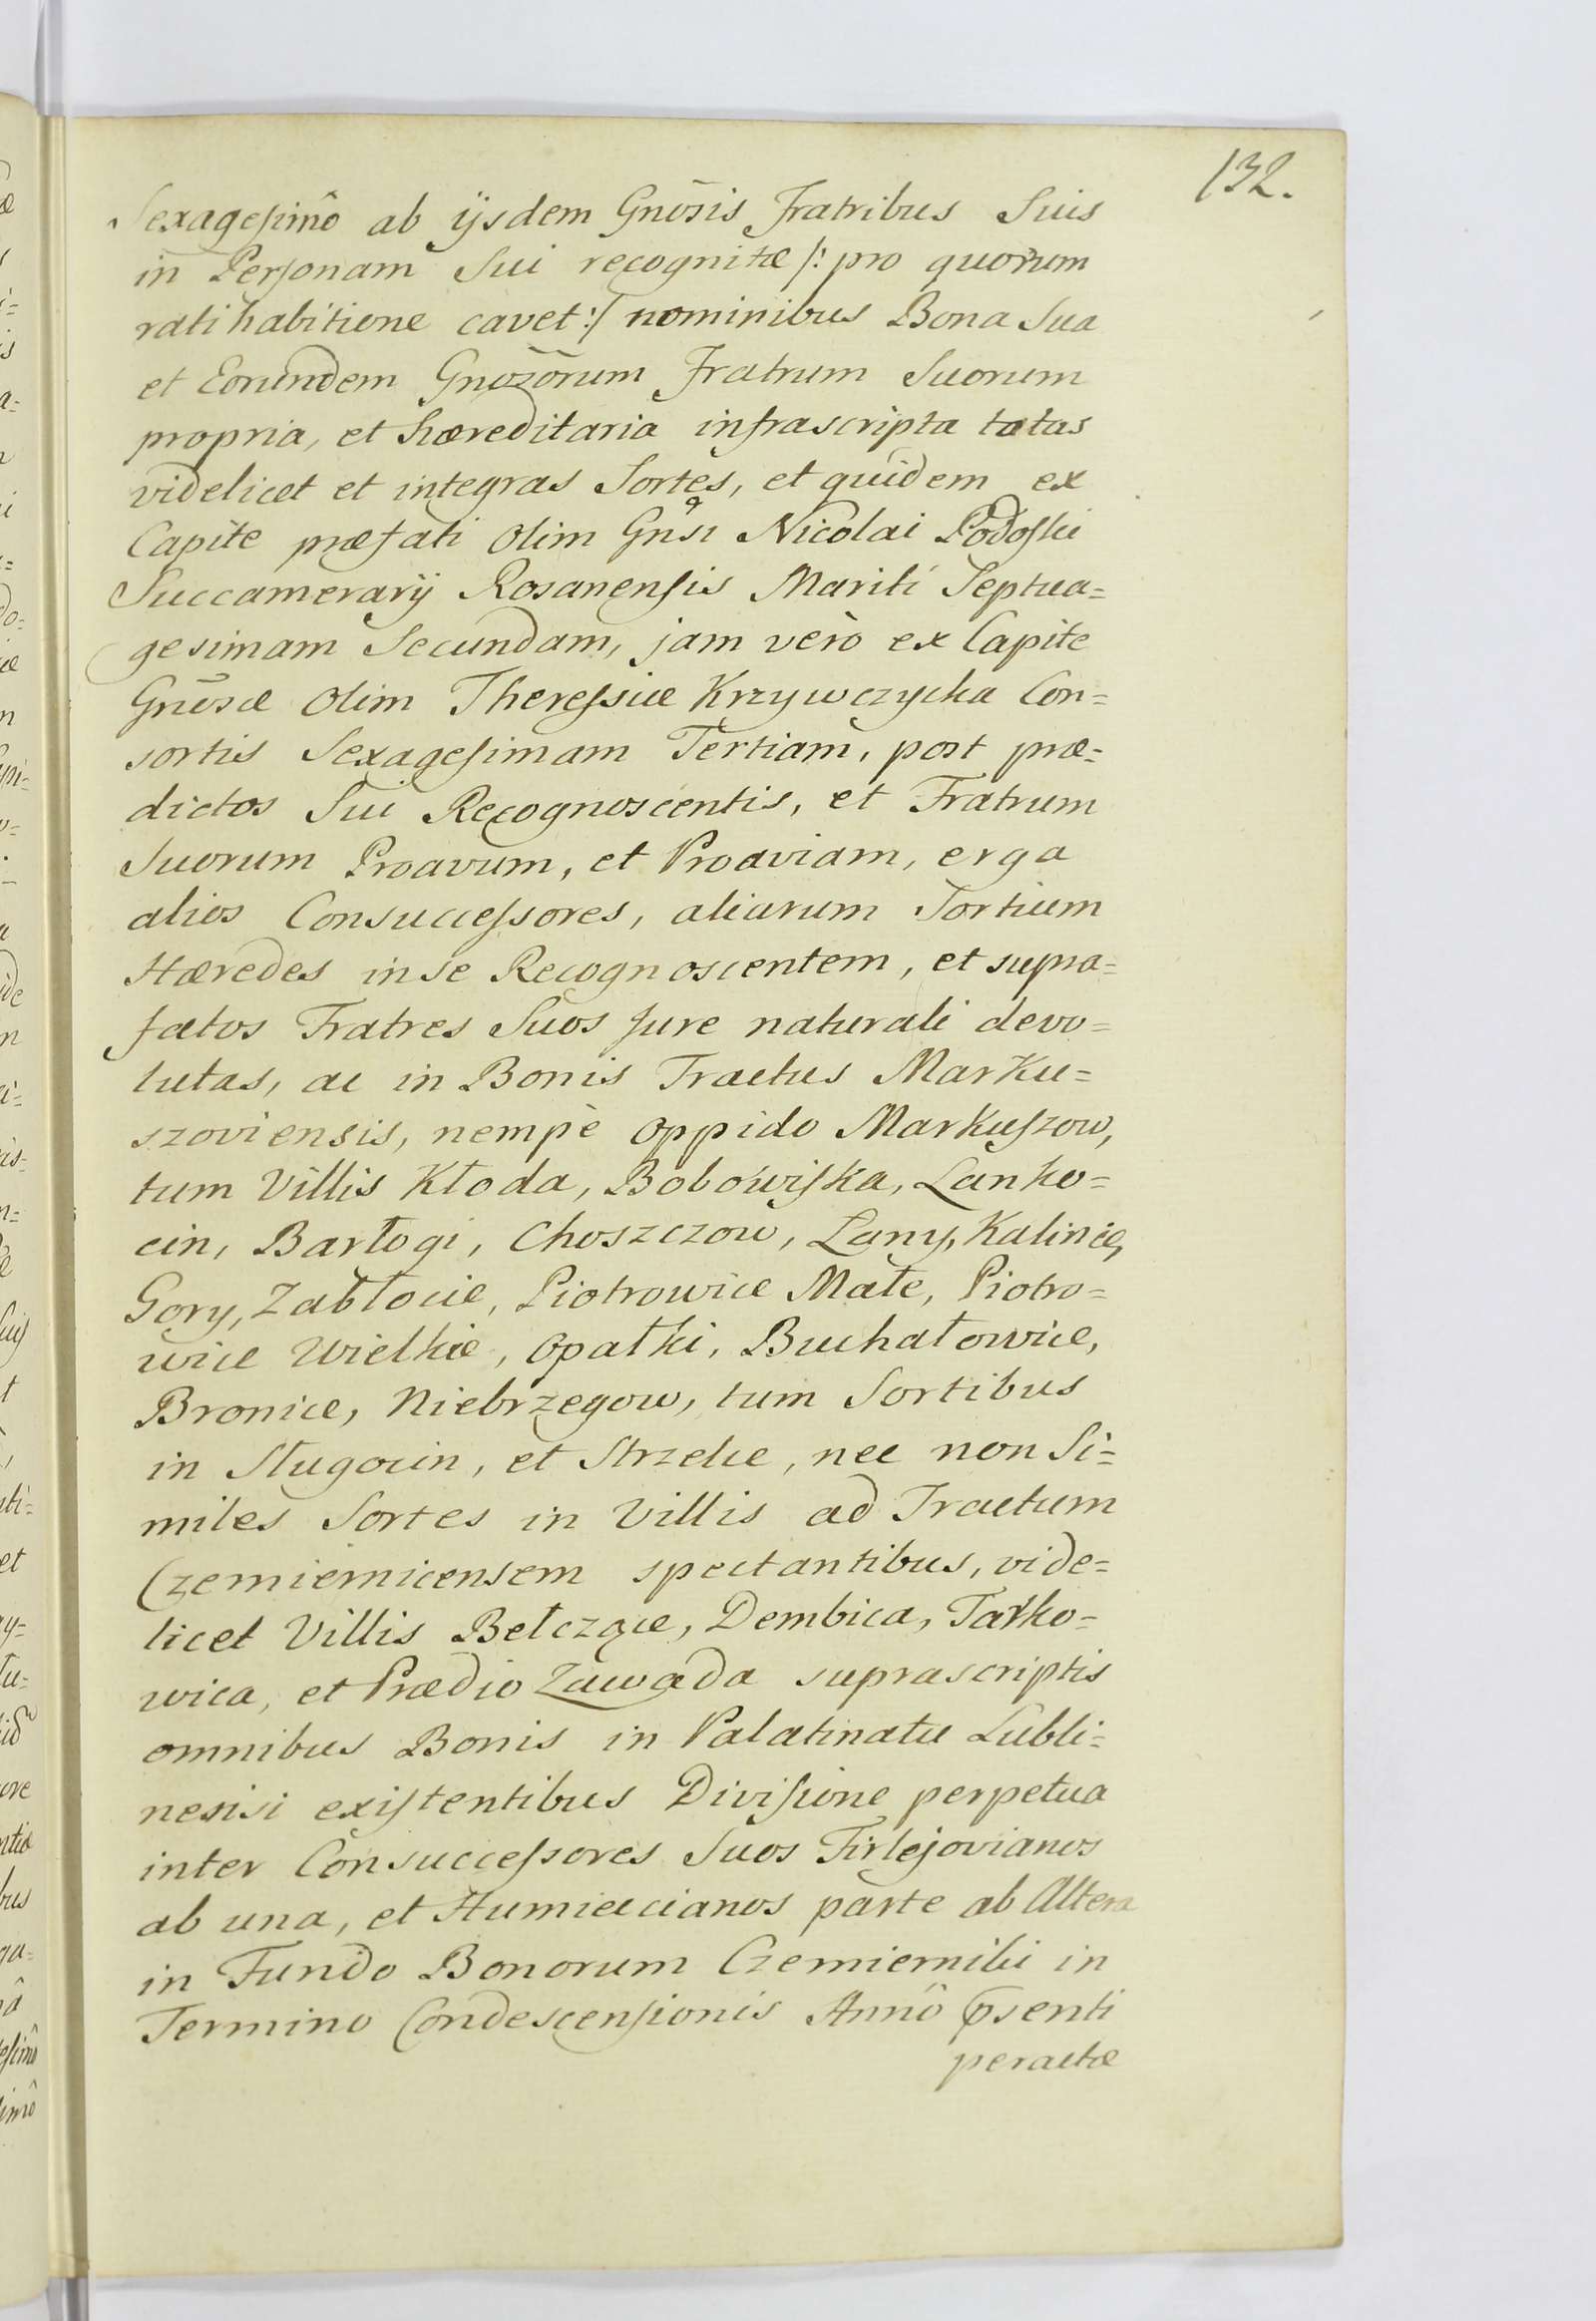 132.
Sexagesimô ab ijsdem Gnōsis Fratribus Suis
in Personam Sui recognitæ /: pro quorum
ratihabitione cavet :/ nominibus Bona Sua
et Eorundem Gnōzōrum Fratrum Suorum
propria, et hæreditaria infrascripta totas
videlicet et integras Sortes, et quidem ex
Capite præfati olim Gn̄si Nicolai Podoski
Succamerarij Rosanensis Mariti Septua=
gesimam Secundam, jam verò ex Capite
Gnōsæ olim Theressiæ Krzywczycka Con=
sortis Sexagesimam Tertiam, post præ=
dictos Sui Recognoscentis, et Fratrum
Suorum Proavum, et Proaviam, erga
alios Consuccessores, aliarum Sortium
Hæredes in se Recognoscentem, et supra=
fatos Fratres Suos Jure naturali devo=
lutas, ac in Bonis Tractus Marku=
szoviensis, nempè Oppido Markuszow,
tum Villis Kłoda, Bobowiska, Lanko=
cin, Barłogi, Choszczow, Łany, Kalinie,
Gory, Zabłocie, Piotrowice Małe, Piotro=
wice Wielkie, Opatki, Buchałowice,
Bronice, Niebrzegow, tum Sortibus
in Sługocin, et Strzelce, nec non Si=
miles Sortes in Villis ad Tractum
Czemiernicensem spectantibus, vide=
licet Villis Bełczące, Dembica, Tarko=
wica, et Prædio Zawada suprascriptis
omnibus Bonis in Palatinatu Lubli=
nensi existentibus Divisione perpetua
inter Consuccessores Suos Firlejovianos
ab una, et Humiecianos parte ab Altera
in Fundo Bonorum Czemierniki in
Termino Condescensionis Annô p̄senti
peractæ